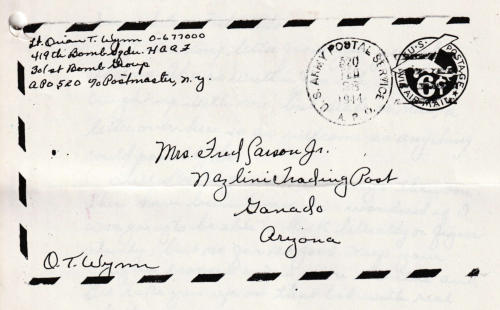 Lt. Orian T. Wynn O-677000
419th Bomb Sqdn. H A A F
301st Bomb Group
APO 520 c/o Postmaster, n.y.
U.S. ARMY POSTAL SERVICE
520
FEB
1944
A. P. O.
U.S. POSTAGE
6¢
VIA AIR MAIL
Mrs. Fred Carson Jr.
Nazlini Trading Post
Ganado
Arizona
O.T. Wynn